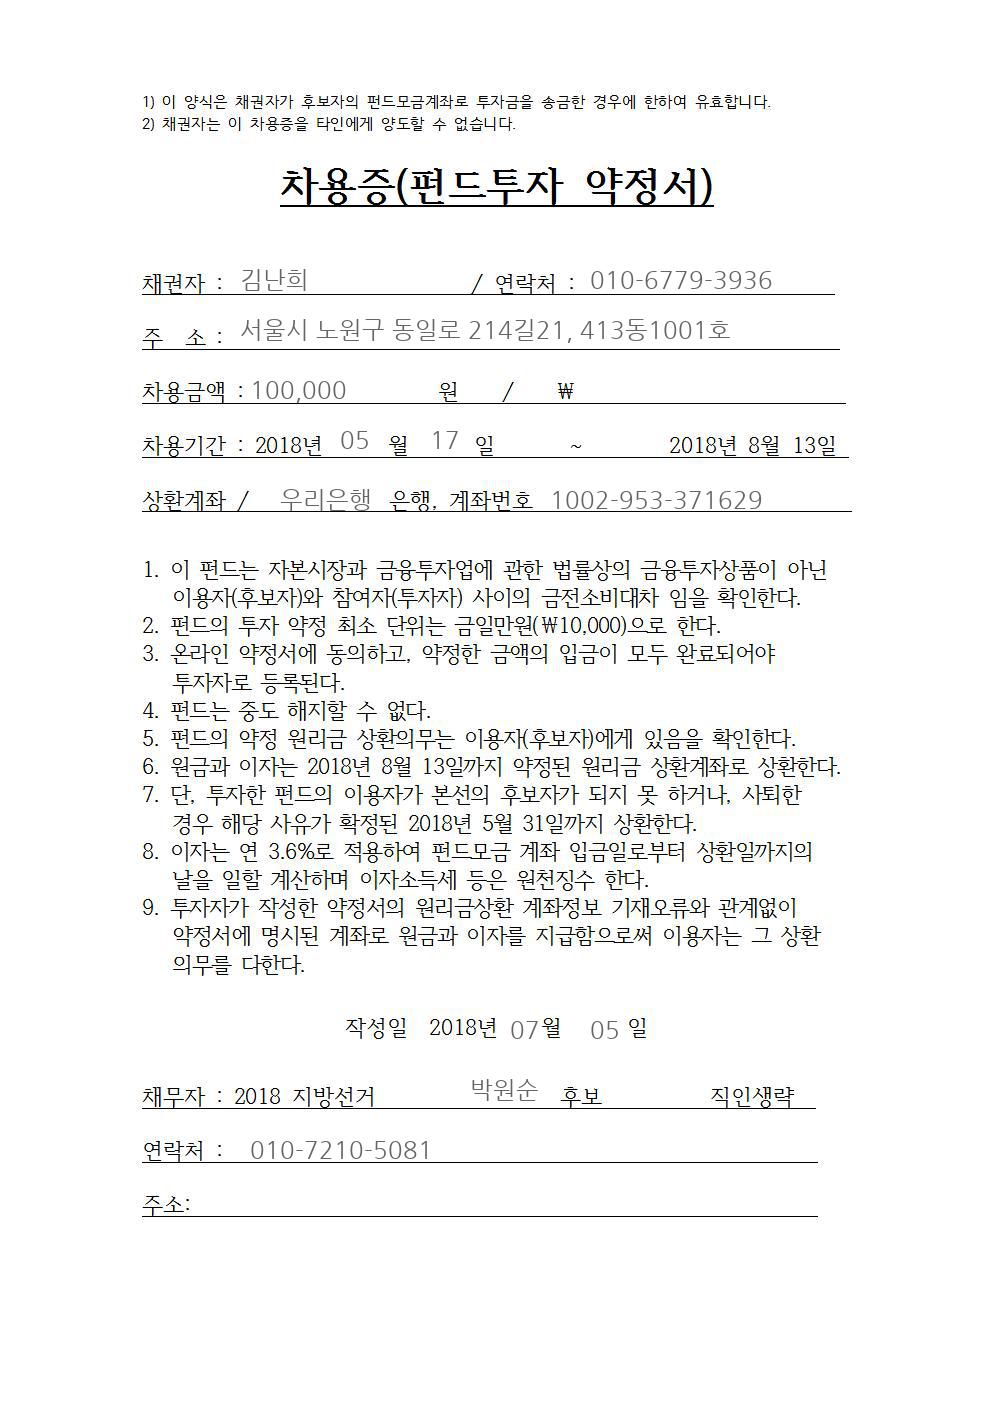 1) 이 양식은 채권자가 후보자의 펀드모금계좌로 투자금을 송금한 경우에 한하여 유효합니다.
2) 채권자는 이 차용증을 타인에게 양도할 수 없습니다.
차용증(펀드투자 약정서)
채권자 : 김난희 / 연락처 : 010-6779-3936
주 소 : 서울시 노원구 동일로 214길21, 413동1001호
차용금액 : 100,000 원 / ₩
차용기간 : 2018년 05 월 17 일 ~ 2018년 8월 13일
상환계좌 / 우리은행 은행, 계좌번호 1002-953-371629
1. 이 펀드는 자본시장과 금융투자업에 관한 법률상의 금융투자상품이 아닌
이용자(후보자)와 참여자(투자자) 사이의 금전소비대차 임을 확인한다.
2. 펀드의 투자 약정 최소 단위는 금일만원(₩10,000)으로 한다.
3. 온라인 약정서에 동의하고, 약정한 금액의 입금이 모두 완료되어야
투자자로 등록된다.
4. 펀드는 중도 해지할 수 없다.
5. 펀드의 약정 원리금 상환의무는 이용자(후보자)에게 있음을 확인한다.
6. 원금과 이자는 2018년 8월 13일까지 약정된 원리금 상환계좌로 상환한다.
7. 단, 투자한 펀드의 이용자가 본선의 후보자가 되지 못 하거나, 사퇴한
경우 해당 사유가 확정된 2018년 5월 31일까지 상환한다.
8. 이자는 연 3.6%로 적용하여 펀드모금 계좌 입금일로부터 상환일까지의
날을 일할 계산하며 이자소득세 등은 원천징수 한다.
9. 투자자가 작성한 약정서의 원리금상환 계좌정보 기재오류와 관계없이
약정서에 명시된 계좌로 원금과 이자를 지급함으로써 이용자는 그 상환
의무를 다한다.
작성일 2018년 07월 05 일
채무자 : 2018 지방선거 박원순 후보 직인생략
연락처 : 010-7210-5081
주소: